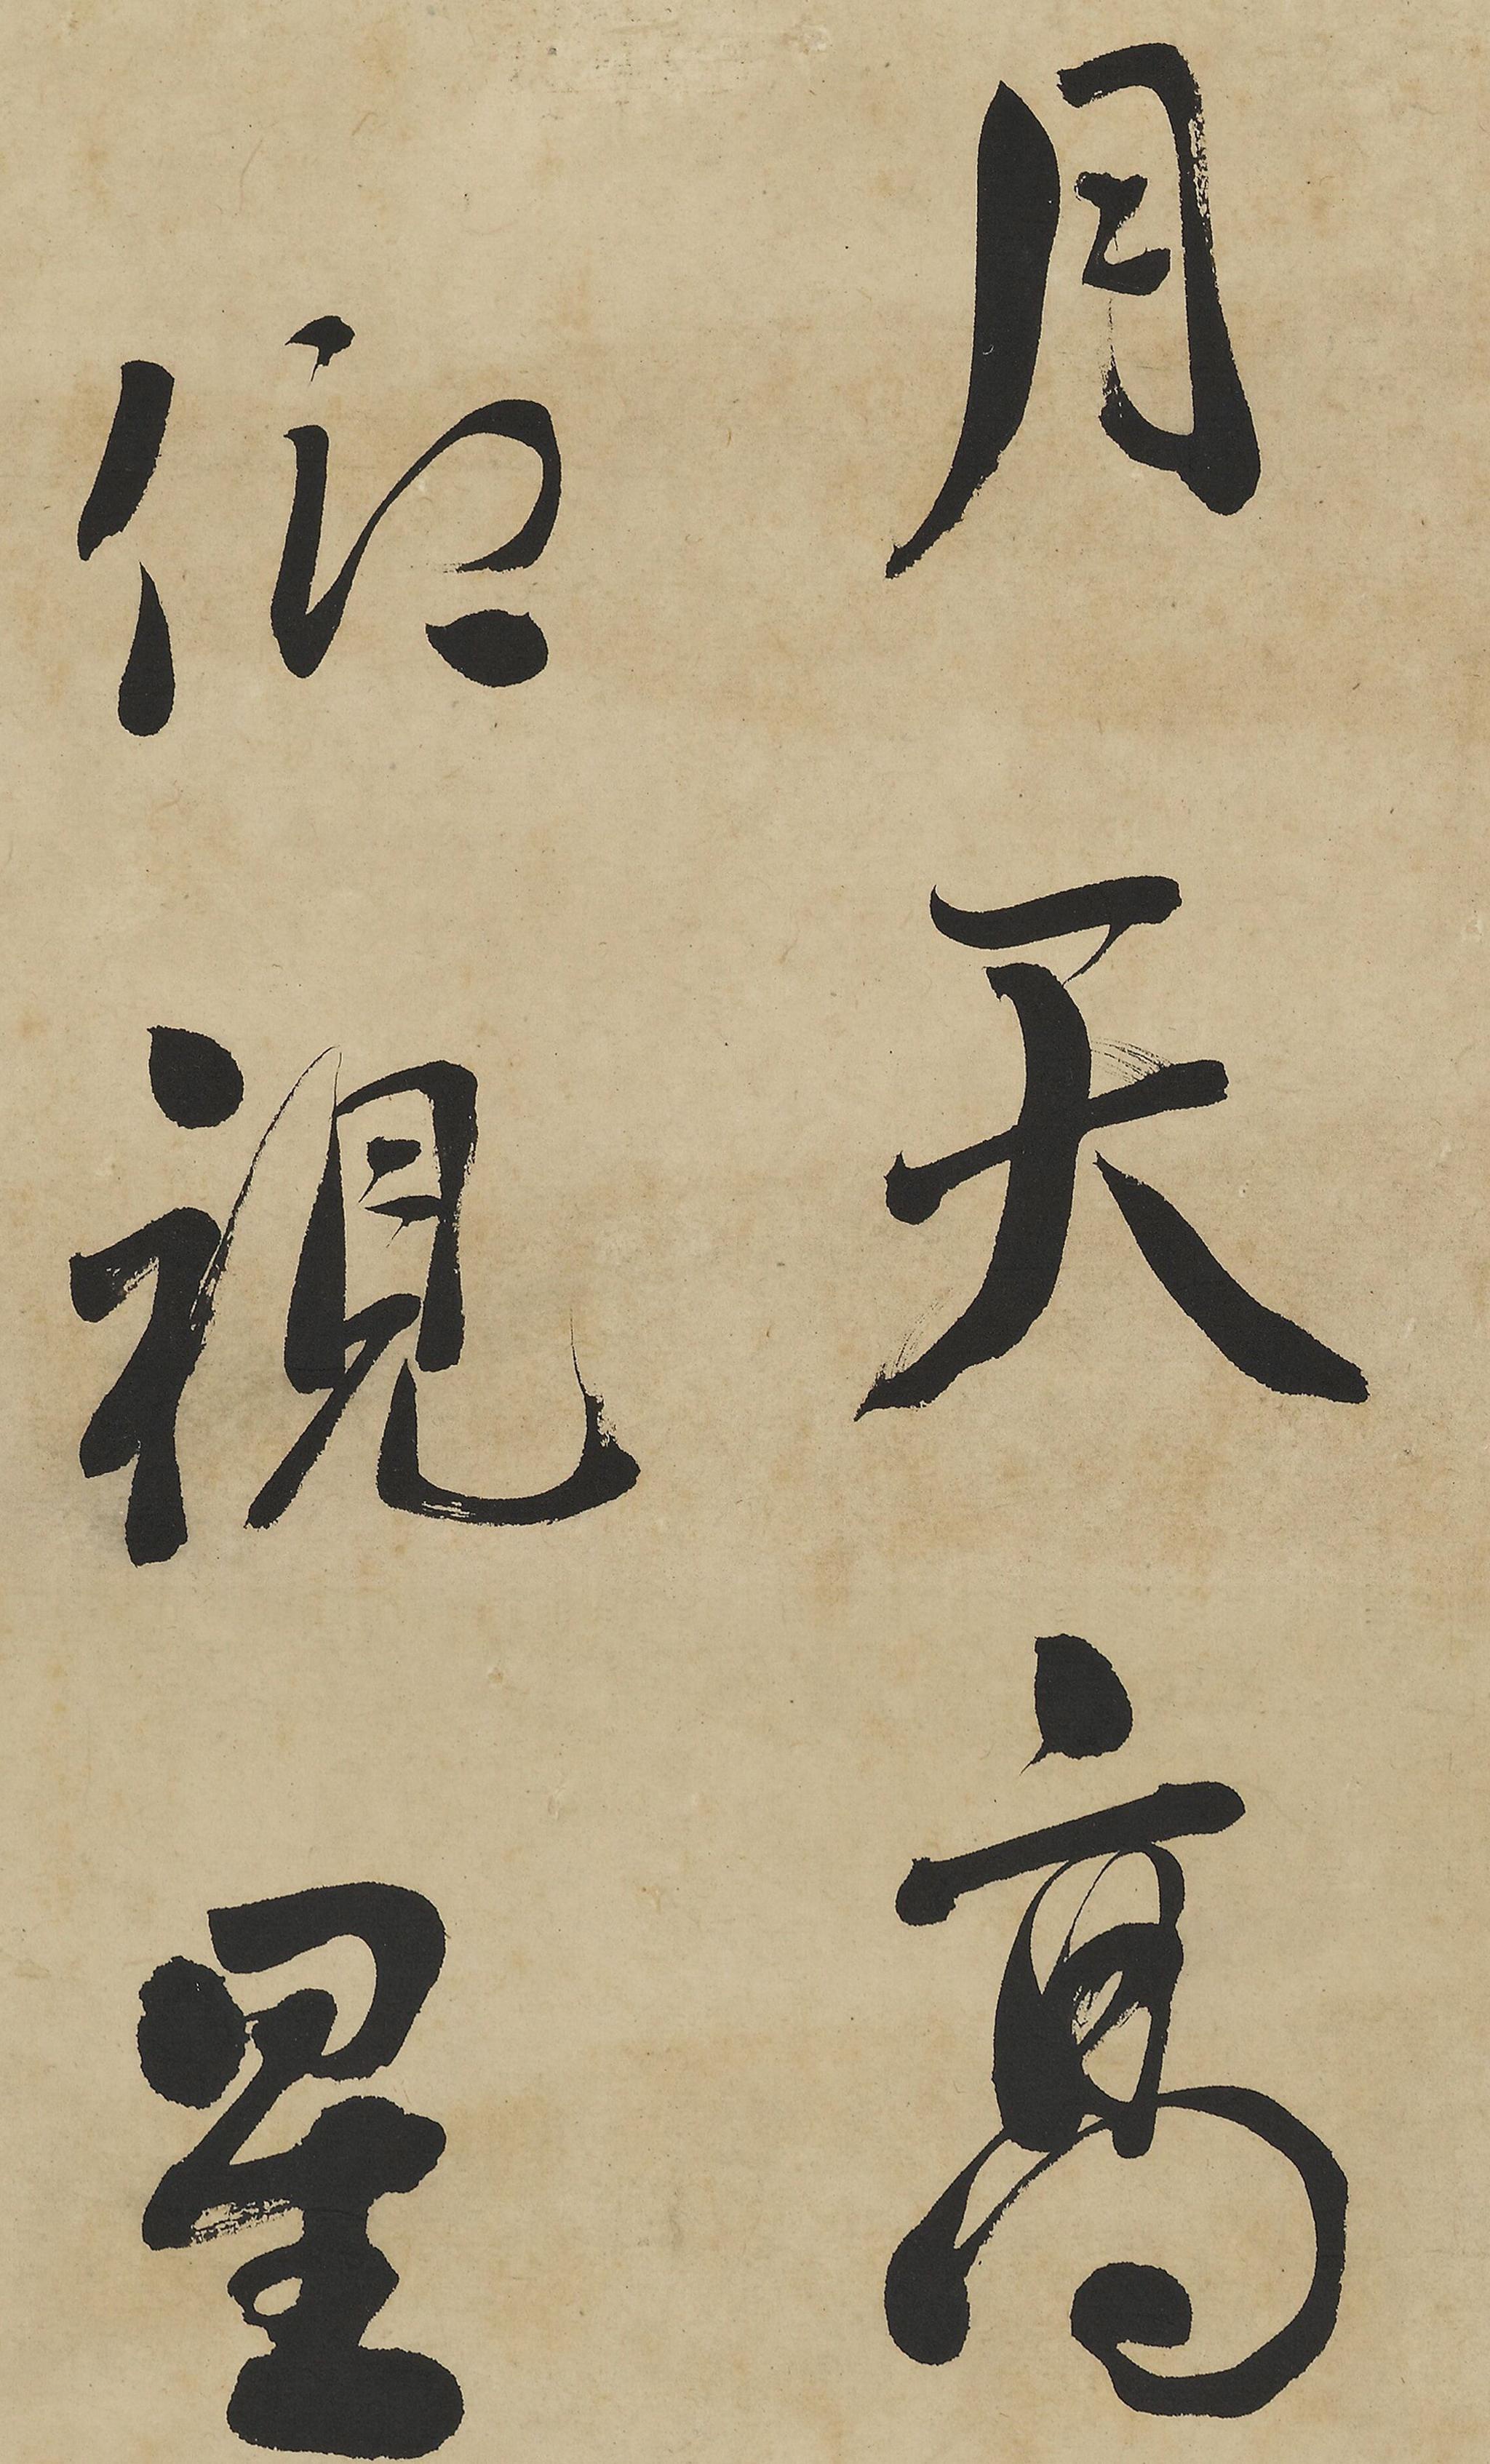 月天高
仰視星